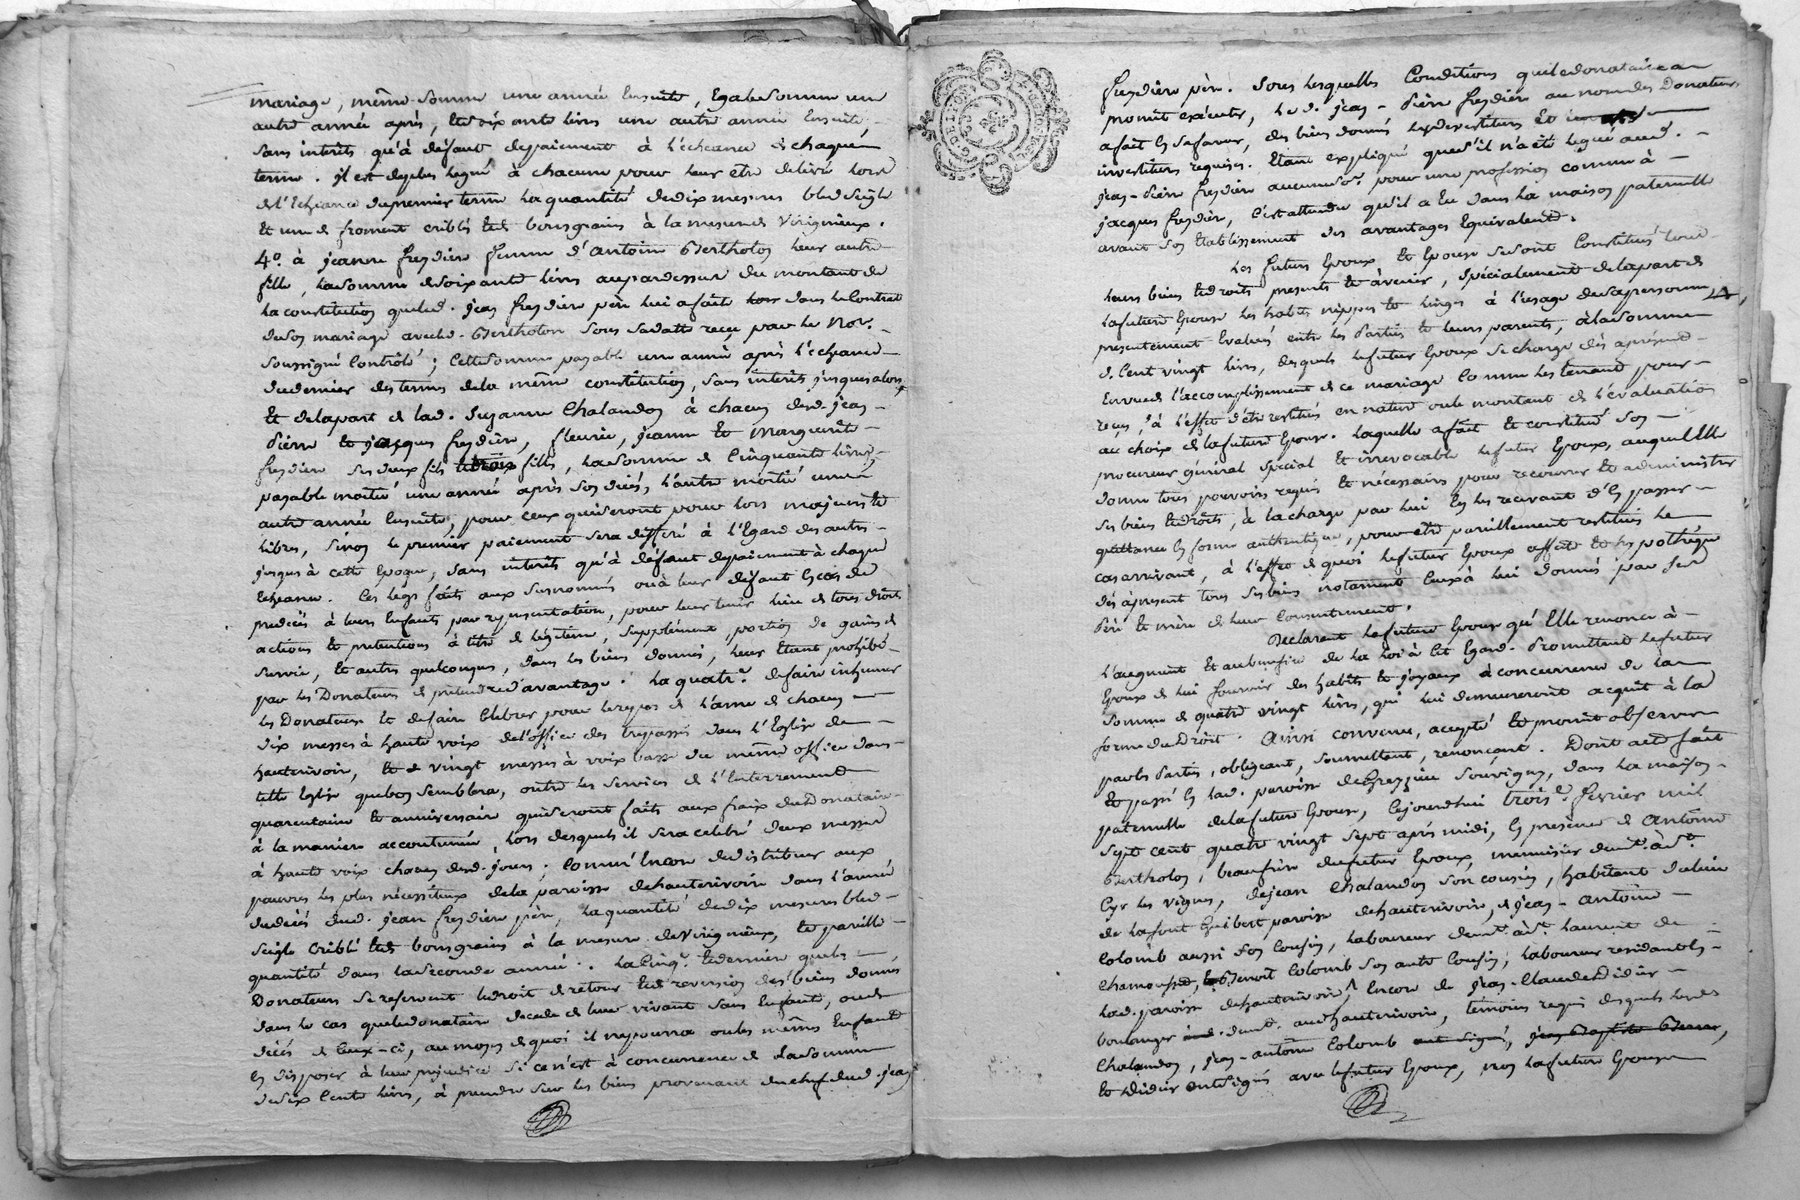 mariage, même somme une année Ensuite, Egale somme une
autre année après, et soixante livres une autre année Ensuite
sans interêts qu'à defaut depaiement à l'écheance de chaque
terme. il est deplus legué à chacune pour leur être delivré lors
de l'Echeance dupremier terme la quantité dedix mesures bled seigle
Et une de froment criblés et de bons grains à la mesure de Virignieux.
4º. à jeanne fresdière femme d'antoine Bertholon leur autre
fille, la somme desoixante livres aupardessus du montant de
la constitution queled. jean fresdière père lui a faite dans le Contrat
deson mariage avec led. Bertholon sous sadatte reçu par le Nore.
soussigné Contrôlé; Cette somme payable une année après l'écheance
dudernier des termes dela même constitution, sans interêts jusques alors,
Et delapart de lad. Suzanne Chalandon à chacun desd. jean-
Pierre et jacques fresdière, fleurie, jeanne et Marguerite
fresdière ses deux fils et trois filles, la somme de Cinquante livres,
payable moitié une année après son décès, l'autre moitié une
autre année Ensuite, pour ceux quiseront pour lors majeurs et
libres, sinon le premier paiement sera differé à l'Egard des autres
jusques à cette Epoque, sans interêts qu'à défaut depaiement à chaque
Echeance. Ces legs faits aux susnommés ou à leur défaut En cas de
predécès à leurs Enfants par representation, pour leur tenir lieu de tous droits
actions et pretentions à titre de légitime, supplément, portion de gains de
survie, Et autres quelconques, dans les biens donnés, leur Etant prohibé
par les Donateurs de pretendre d'avantage. La quatre. defaire inhumer
les Donateurs et defaire Celebrer pour lerepos de l'ame de chacun
dix messes à haute voix del'office des trepassés dans l'Eglise de
hauterivoire, Et de vingt messes à voix basse du même office dans
telle Eglise quebon semblera, outre les services de l'Enterrement
quarantaine et anniversaire quiseront faits aux fraix dudDonataire
à la maniere accoutumée, lors desquels il sera celebré deux messes
à haute voix chacun desd. jours; Comm'Encore dedistribuer aux
pauvres les plus nécessiteux dela paroisse dehauterivoire dans l'année
dudécès dud. jean fresdière père, la quantité dedix mesures bled
seigle criblé et de bons grains à la mesure deVirignieux, et pareille
quantité dans la seconde année. La Cinqe. et dernière queles
Donateurs se reservent ledroit de retour et de reversion des biens donnés
dans le cas queledonataire decede de leur vivant sans Enfants, ou de
décès de Ceux-ci, au moyen de quoi il nepourra ou les mêmes Enfants
En disposer à leur prejudice si ce n'est à concurrence de la somme
desix Cents livres, à prendre sur les biens provenant duchef dud. jean
fresdière père. Sous lesquelles Conditions queledonataire a
promit exécuter, Led. jean-Pierre fresdière au nom des Donateurs
a fait En safaveur, des biens donnés les devestitures Et
investitures requises. Etant expliqué que s'il n'a été legué aud.
jean-Pierre fresdière aucune soe. pour une profession comme à
jacques fresdière, C'est attendu qu'il a Eu dans la maison paternelle
avant son Etablissement des avantages Equivalents.
Les futurs Epoux Et Epouse se sont Constitués tous
leurs biens et droits presents et à venir, spécialement delapart de
lafuture Epouse les habits nippes et linges à l'usage desapersonne,
presentement Evalués entre les Parties et leurs parents, à la somme
de Cent vingt livres, desquels le futur Epoux se charge dès à présent
Envoue de l'accomplissement de ce mariage Comme les tenant pour
reçus, à l'effet d'être restitués en nature ou le montant de l'évaluation
au choix de lafuture Epouse. Laquelle a fait Et constitué son
procureur général special Et irrevocable le futur Epoux, auquel Elle
donne tous pouvoirs requis Et nécessaires pour recouvrer et administrer
ses biens et droits, à la charge par lui En les recevant d'En passer
quittance En forme authentique, pour être pareillement restitués le
cas arrivant, à l'effet de quoi lefutur Epoux affecte et hypothéque
dès àpresent tous ses biens notamment Ceux à lui donnés par ses
Père Et mère de leur Consentement.
Declarant lafuture Epouse qu'Elle renonce à
l'augment Et au benefice de la Loi à cet Egard. Promettant lefutur
Epoux de lui fournir des habits et joyaux à concurrence de la
somme de quatre vingt livres, qui lui demeureront acquit à la
forme duDroit. Ainsi convenu, accepté et promit observer
par les Parties, obligeant, soumettant, renonçant. Dont acte fait
Et passé En lad. paroisse deGrezieu Souvigny, dans la maison
paternelle delafuture Epouse, Cejourd'hui troise. fevrier mil
sept cent quatre vingt sept après midi, En présence de Antoine
Bertholon, beaufrère dufutur Epoux, menuisier demt. à St.
Cyr les vignes, dejean Chalandon son cousin, habitant dulieu
de la font Guibert paroisse dehauterivoire, de jean-antoine
Colomb aussi son Cousin, laboureur demt. à St. laurent de
Chamousset, Benoit Colomb son autre Cousin, laboureur residant En
lad. paroisse dehauterivoire, Encore de jean-Claude Didier
boulanger demt. aud hauterivoire, temoins requis desquels lesds
Chalandon, jean-antoine Colomb ont signé, jean Baptiste
et Didier ont signé avec lefutur Epoux, non lafuture Epouse